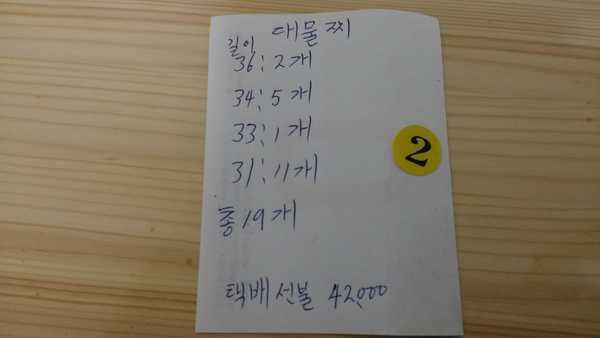 대물찌
길이
36: 2개
34: 5개
33: 1개
31: 11개
총 19개
택배선불 42,000
2